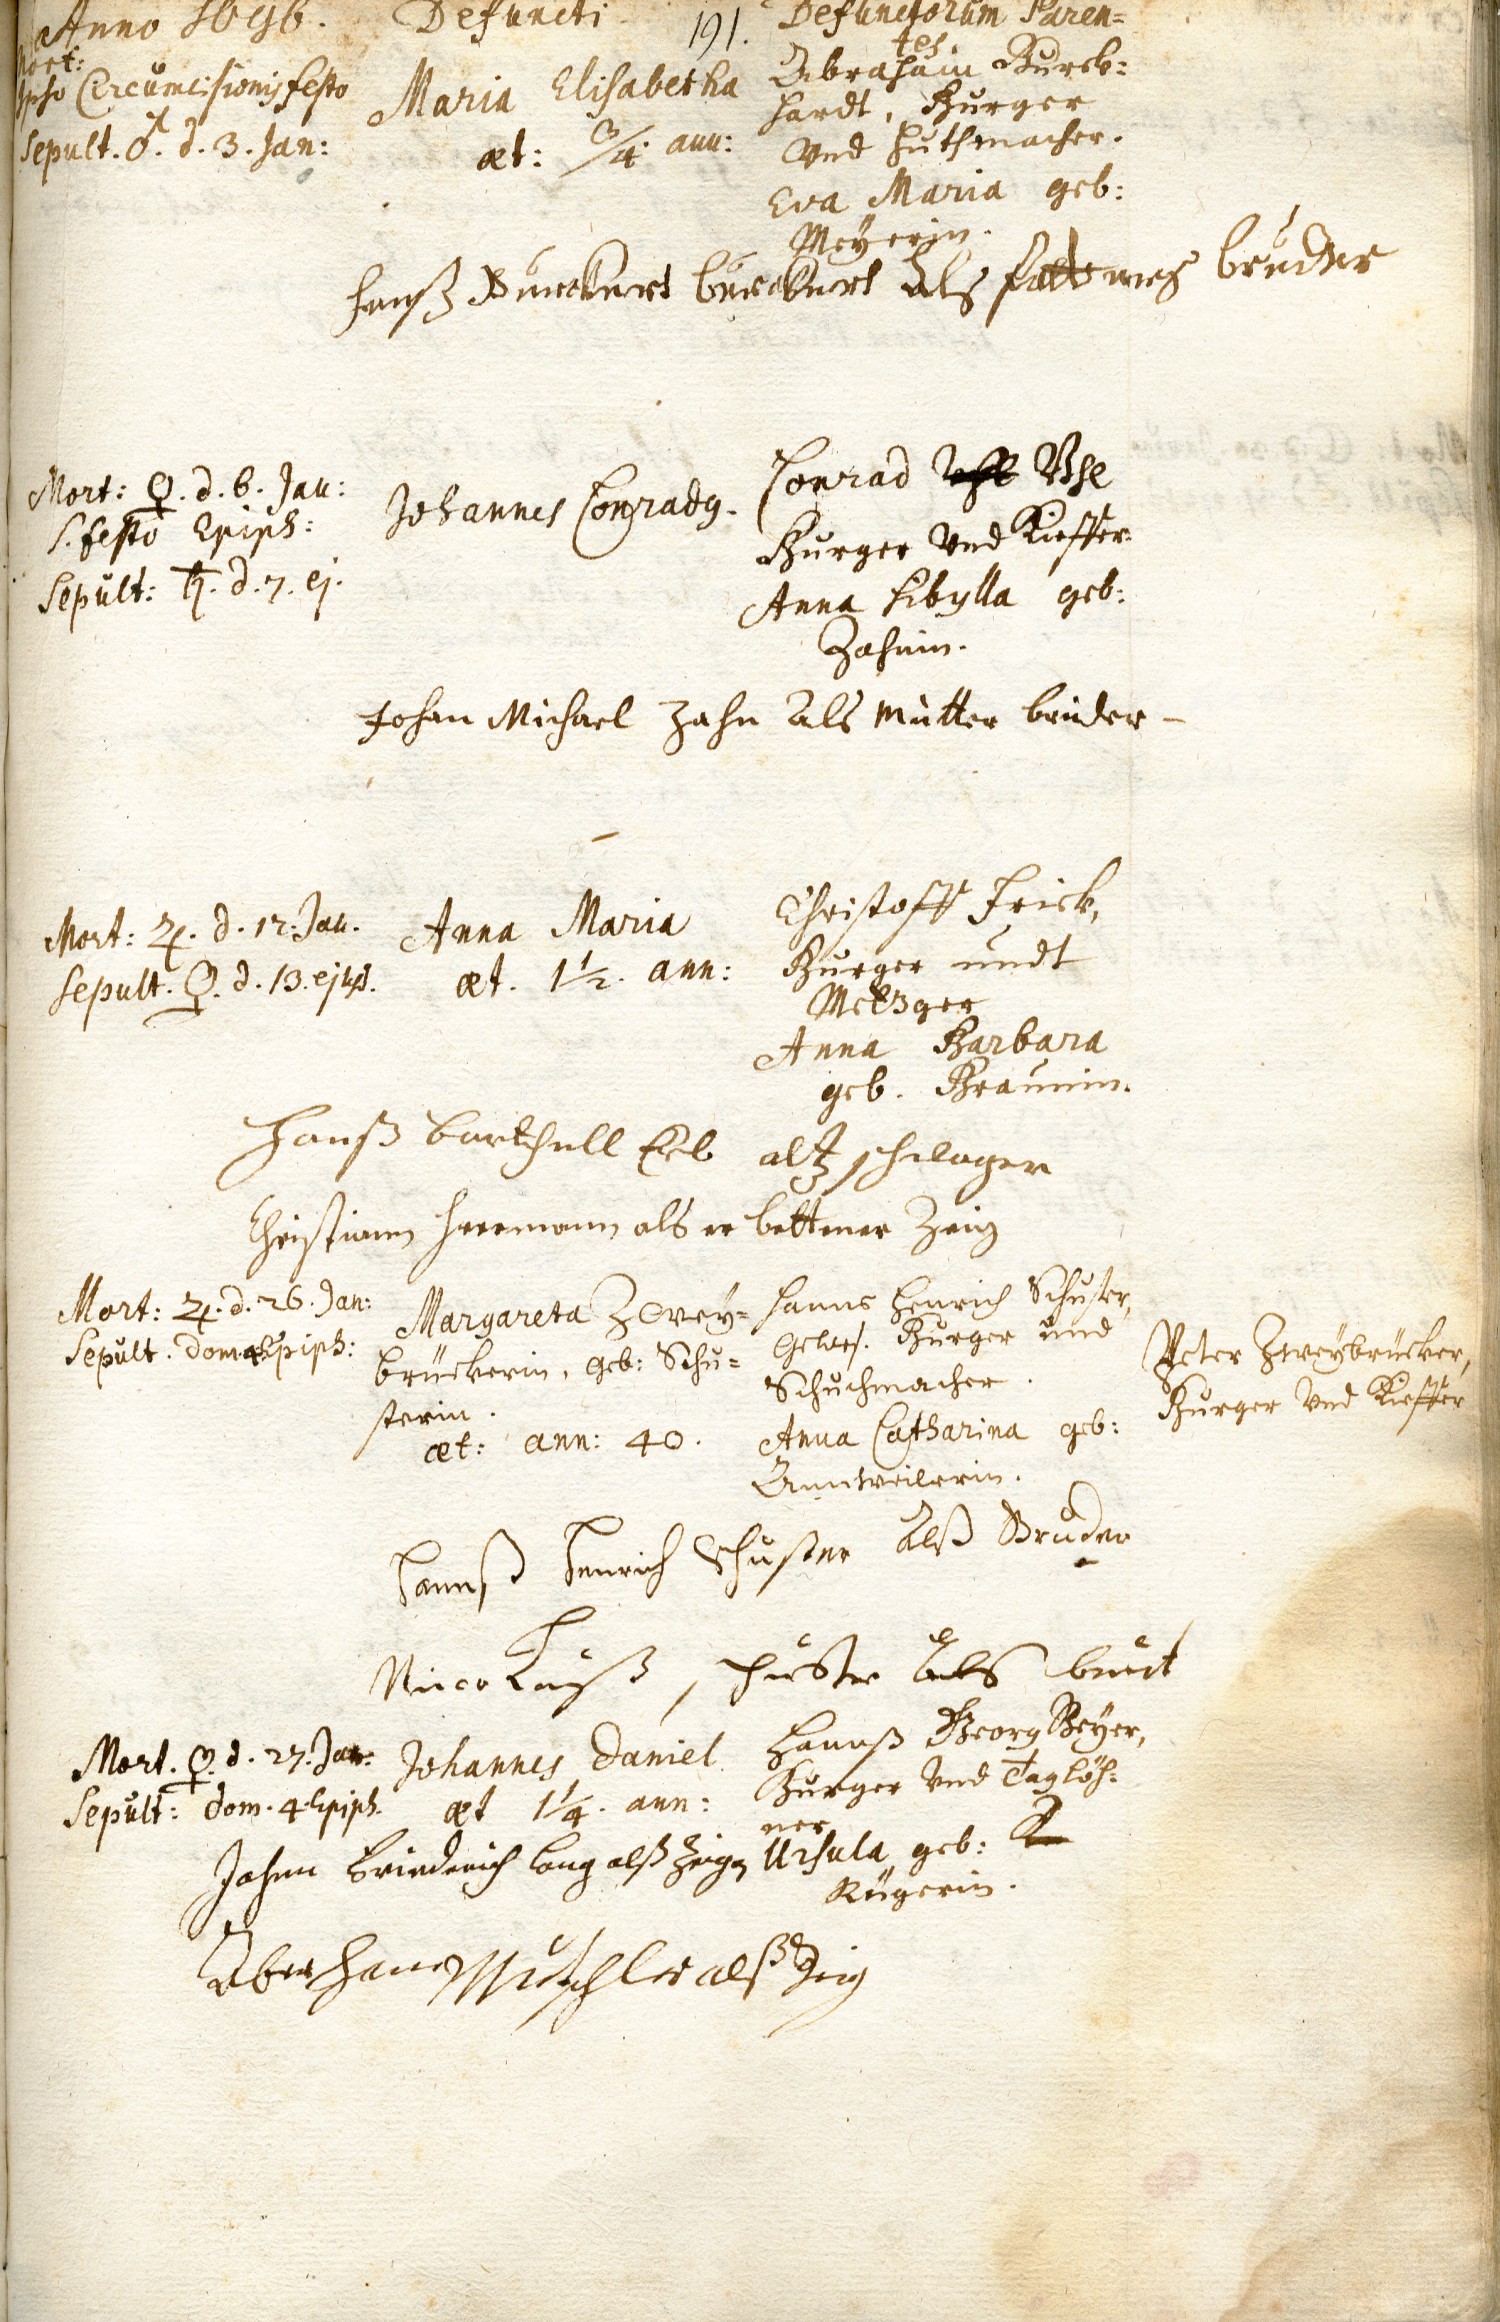 Anno 1696. Defuncti 191. Defunctorum Paren=
tes.
Mort:
ipso Circumcisionis festo
Sepult. ♂. d. 3. Jan:
Maria Elisabetha
æt: 3/4 ann:
Abraham Burck:
hardt, Burger
und Huthmacher.
Eva Maria geb:
Meyerin.
Hanß Burckhart Burckhart als brudter
Mort: ♀. d. 6. Jan:
s. festo Epiph:
Sepult: ♄. d. 7. ej.
Johannes Conradg.
Conrad Uhl
Burger und Kieffer.
Anna Sibylla geb:
Zahnin.
Johan Michael Zahn Als mutter bruder
Mort: ♃. d. 12. Jan.
Sepult. ♀. d. 13. ejusd.
Anna Maria
æt. 1 1/2. ann:
Christoff Frick,
Burger undt
Metzger
Anna Barbara
geb. Braunin.
Hanß barthell Erb alß schwager
Christiann Herrmann als er bettener Zeig
Mort: ♃. d. 26. Jan:
Sepult. dom. 4 Epiph:
Margareta Zwey=
brückerin, geb: Schu=
sterin.
æt: ann: 40.
Hanns Henrich Schuster,
Gewes. Burger und
Schuchmacher.
Anna Catharina geb:
Annweilerin.
Peter Zweybrücker,
Burger und Kieffer
Hannß Henrich Schuster Alß Bruder
Nicolauß schuster Als
Mort. ♀. d. 27. Jan:
Sepult: dom. 4. Epiph.
Johannes Daniel
æt 1 1/4. ann:
Hannß Georg Beyer,
Burger und Taglöh=
ner
Ursula geb:
Rügerin.
Johan Friederich Lang alß Zeig
Aberham Mutschler alß Zeig